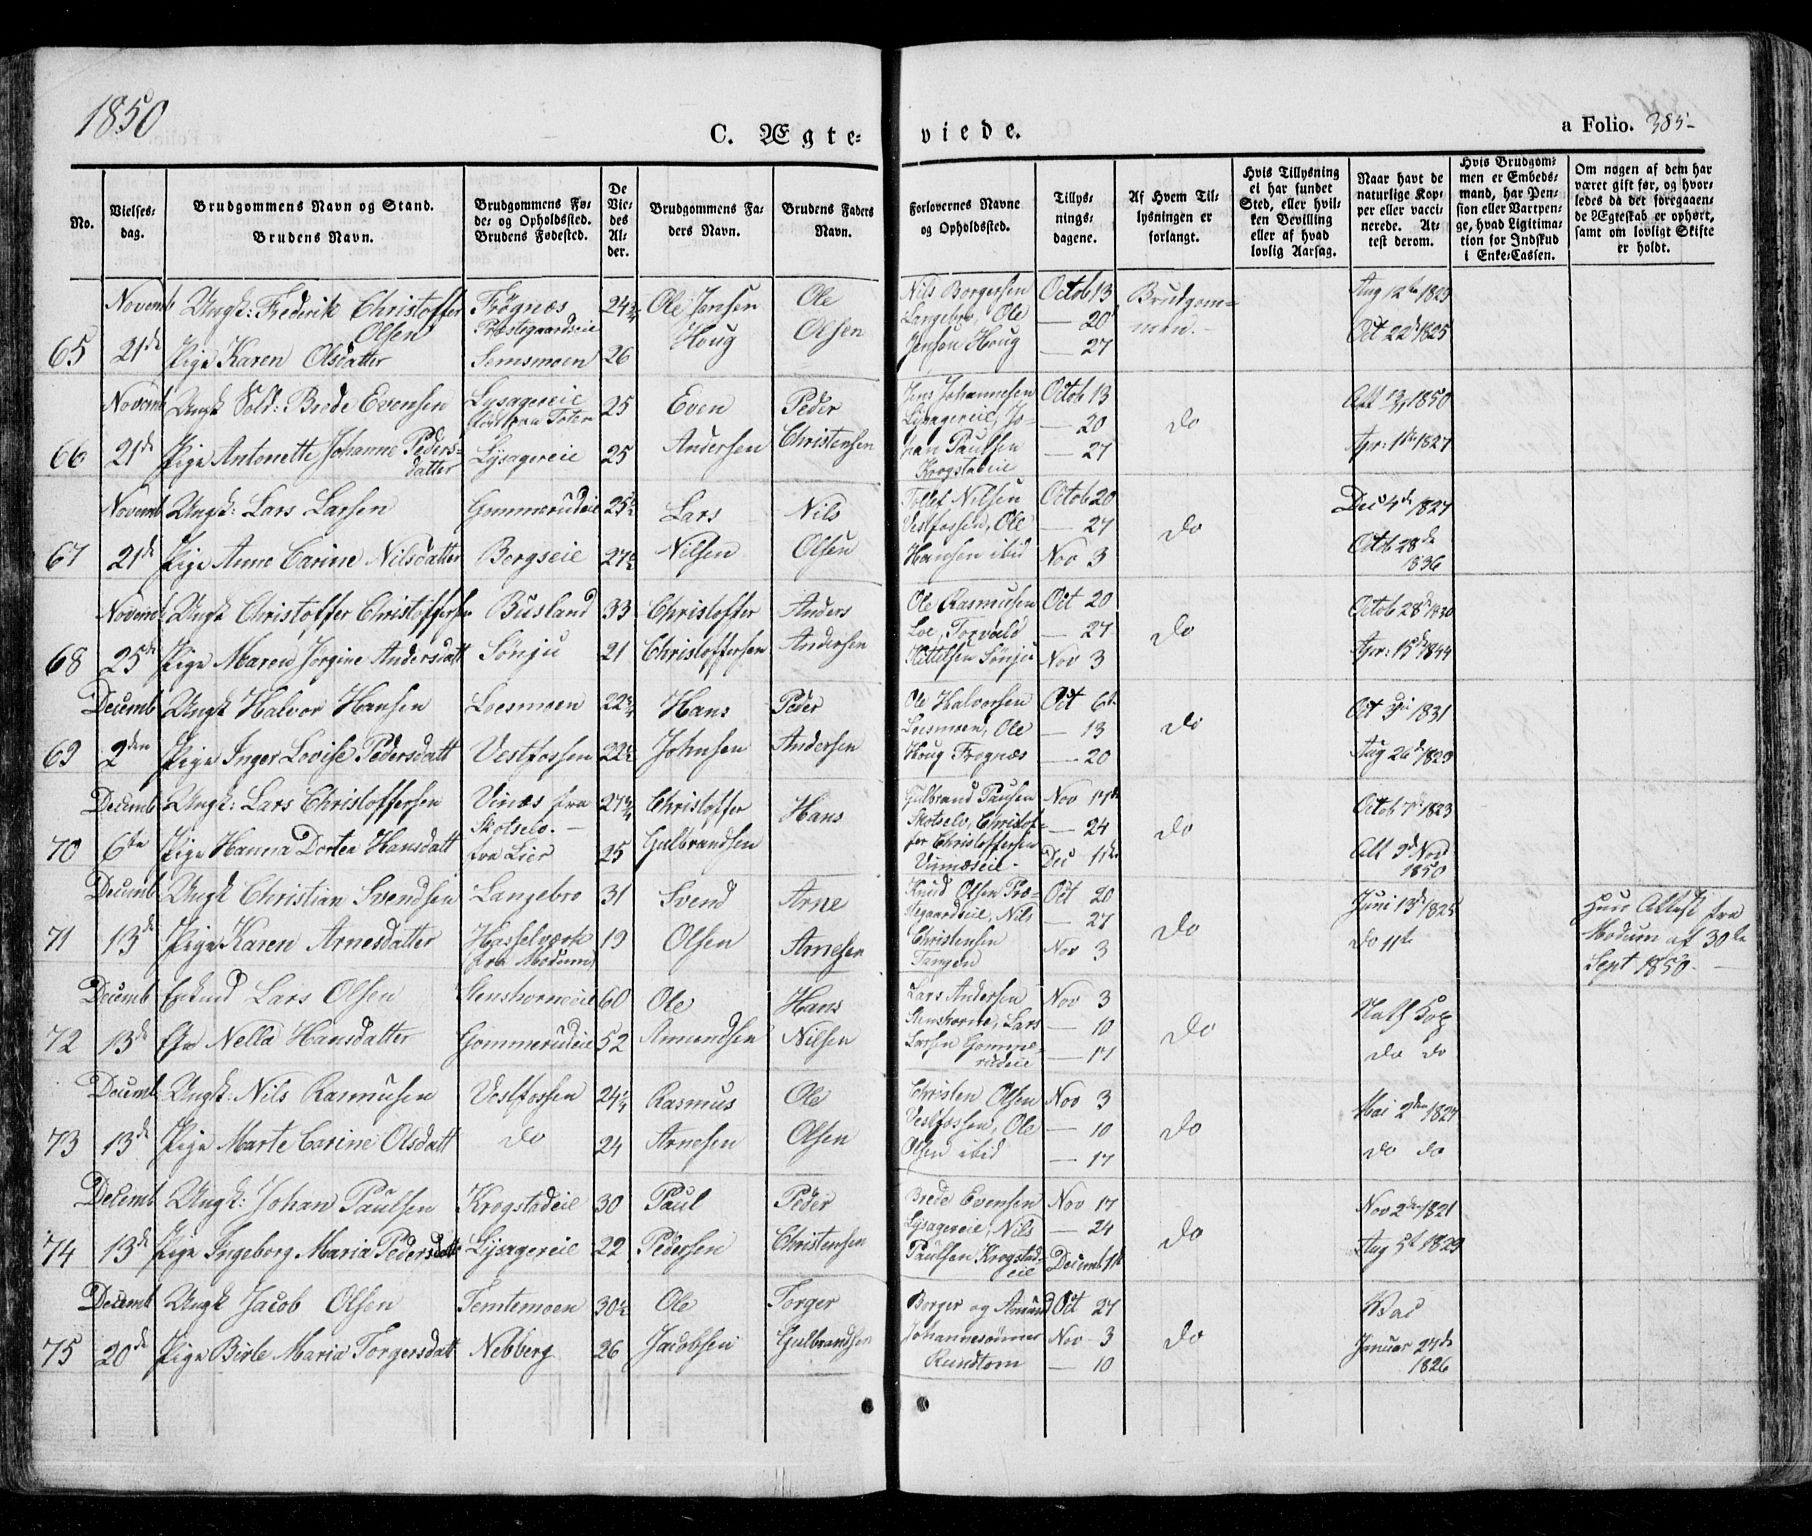 1850
C. Ægteviede.
a Folio. 385-
No.
Vielsesdag.
Brudgommens Navn og Stand.
Brudens Navn.
Brudgommens Føde- og Opholdssted.
Brudens Fødested.
De Viedes Alder.
Brudgommens Faders Navn.
Brudens Faders Navn.
Forlovernes Navne og Opholdssted.
Tillysningsdagene.
Af Hvem Tillysningen er forlangt.
Hvis Tillysning ei har fundet Sted, eller hvilken Bevilling eller af hvad lovlig Aarsag.
Naar havt de naturlige Kopper eller vaccinerede. Attest derom.
Hvis Brudgommen er Embedsmand, har Pension eller Vartpenge, hvad Ligitimation for Indskud i Enke-Cassen.
Om nogen af dem har været gift før, og hvorledes da det foregaaende Ægteskab er ophørt, samt om lovligt Skifte er holdt.
65 Novemb 21de Ungk: Frederik Christoffer Olsen Frøgnæs Præstegaardseie 24¾ Ole Jensen Houg Ole Olsen Nils Borgersen Octob 13 Brudgommen. Aug 12te 1823
Pige Karen Olsdatter Semsmoen 26 Langebro, Ole Jensen Houg — 20 — 27 Oct 22de 1825
66 Novemb 21de Ungk Sold: Brede Evensen Lysagereie født paa Toten 25 Even Andersen Peder Christensen Jens Johannesen Octob 13 do Att 1850
Pige Antonette Johanne Pedersdatter Lysagereie 25 Lysagereie, Johan Paulsen Krogstadeie — 20 — 27 Apr: 1827
67 Novemb 21de Ungk: Lars Larsen Gommerudeie 25½ Lars Nilsen Nils Olsen Tollef Nilsen Octob 20 do Dec 4de 1827
Pige Anne Carine Nilsdatter Borgseie 27½ Vestfossen, Ole Hansen ibid — 27 Nov 3 Octob 28de 1836
68 Novemb 25de Ungk Christoffer Christoffersen Busland 33 Christoffer Christoffersen Anders Andersen Ole Rasmusen Oct 20 do Octob 28de 1830
Pige Maren Jorgine Andersdatt Sønju 21 Loe, Torvald Kittelsen Sønju — 27 Nov 3 Apr: 15de 1844
69 Decemb 2den Ungk Halvor Hansen Loesmoen 22¾ Hans Johnsen Peder Andersen Ole Halvorsen Oct 6te do Oct 1831
Pige Inger Lovise Pedersdatt Vestfossen 22½ Loesmoen, Ole Houg Frognæs — 13 — 20 Aug 26de 1829
70 Decemb 6te Ungk: Lars Christoffersen Vinæs fra Skotselv.— 27¾ Christoffer Gulbrandsen Hans Gulbrand Paulsen Nov 17de do Octob 7de 1823
Pige Hanna Dortea Hansdatt fra Lier 25 Skotselv, Christoffer Christoffersen Vinnæseie. — 24 Dec 1ste Att 9de Nov 1850
71 Decemb 13de Ungk Christian Svendsen Langebro 31 Svend Olsen Arne Arnesen Knud Olsen Præstegaardseie, Nils Oct 20 do Juni 13de 1825
Pige Karen Arnesdatter Hasselværk fra Modum 19 Christensen Tangen — 27 Nov 3 do 11te
Hun Attest fra Modum af 30te Sept 1850.—
72 Decemb 13de Enkmd Lars Olsen Stenshorneeie 60 Ole Amundsen Hans Nilsen Lars Andersen Nov 3 do Nath Kop
Nella Hansdatter Gommerudeie 52 Stenshorne, Lars Larsen Gommerudeie — 10 — 17 do do
73 Decemb 13de Ungk: Nils Rasmusen Vestfossen 24¼ Rasmus Arnesen Ole Olsen Christen Olsen Nov 3 do Mai 2den 1827
Pige Marte Carine Olsdatt do 24 Vestfossen, Ole Olsen ibid — 10 — 17 do do
74 Decemb 13de Ungk: Johan Paulsen Krogstadeie 30 Paul Pedersen Peder Christensen Brede Evensen Nov 17 do Nov 2den 1821
Pige Ingeborg Maria Pedersdatt Lysagereie 22 Lysagereie, Nils Paulsen Krogstadeie — 24 Decemb 1ste Aug 5te 1829
75 Decemb 20de Ungk Jacob Olsen Temtemoen 30½ Ole Jacobsen Torger Gulbrandsen Borger og Amund Oct 27 do Vac
Pige Birte Maria Torgersdatt Nebberg 26 Johannesønner Rundtom Nov 3 — 10 Januar 27de 1826